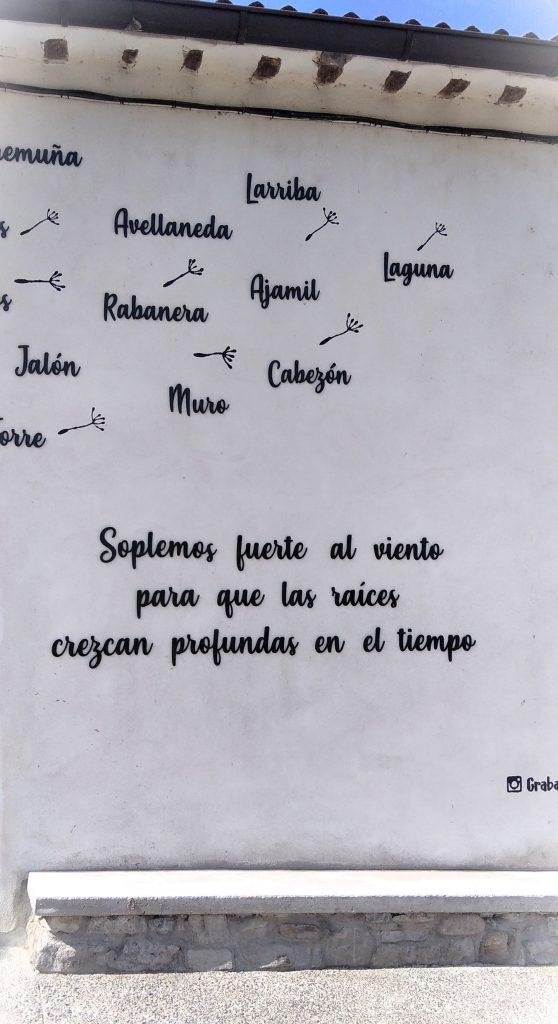 emuña
Larriba
s
Avellaneda
Laguna
s
Rabanera
Ajamil
Jalón
Cabezón
Muro
Torre
Soplemos fuerte al viento
para que las raíces
crezcan profundas en el tiempo
Graba